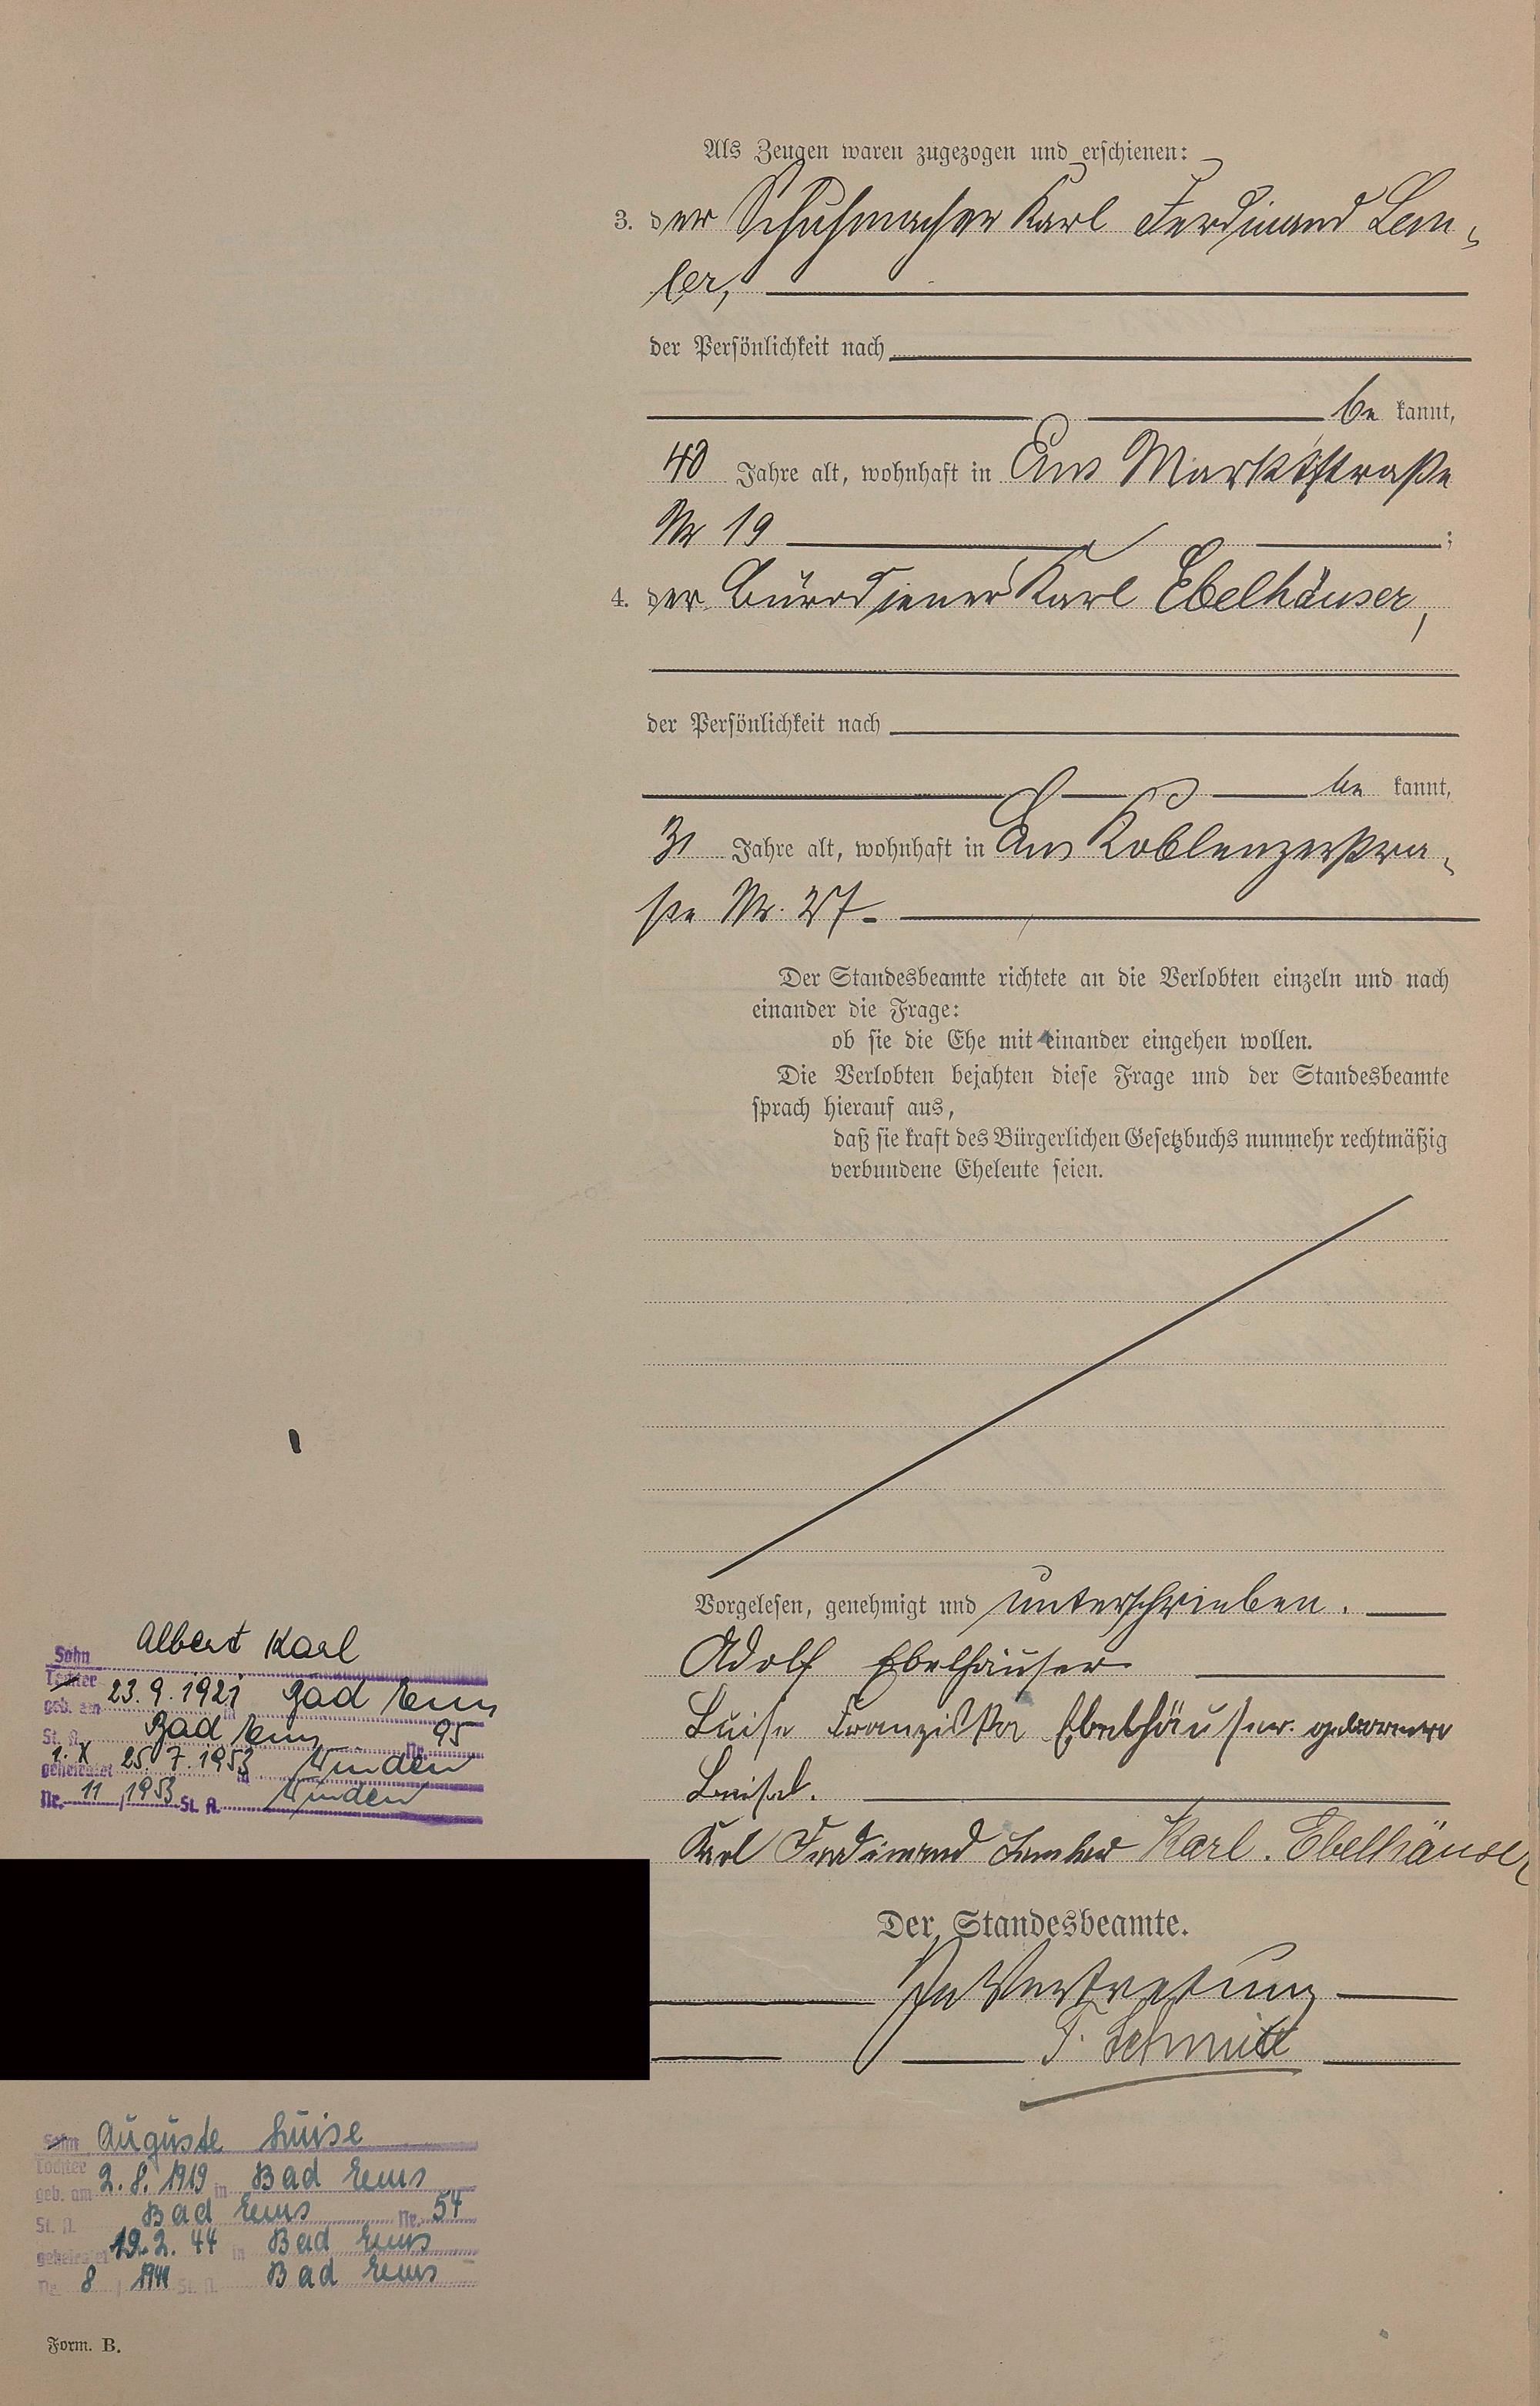 Als Zeugen waren zugezogen und erschienen:
3. der Schuhmacher Karl Ferdinand Lem-
ler,
der Persönlichkeit nach
be kannt,
40 Jahre alt, wohnhaft in Ems Marktstraße
Nr 19 ;
4. der Bürodiener Karl Ebelhäuser,
der Persönlichkeit nach
be kannt,
31 Jahre alt, wohnhaft in Ems Koblenzerstra-
ße Nr. 27.
Der Standesbeamte richtete an die Verlobten einzeln und nach
einander die Frage:
ob sie die Ehe mit einander eingehen wollen.
Die Verlobten bejahten diese Frage und der Standesbeamte
sprach hierauf aus,
daß sie kraft des Bürgerlichen Gesetzbuchs nunmehr rechtmäßig
verbundene Eheleute seien.
Vorgelesen, genehmigt und unterschrieben.
Adolf Ebelhäuser
Luise Franziska Ebelhäuser geborene
Karl Ferdinand Lemler Karl. Ebelhäuser
Der Standesbeamte.
In Vertretung
F. Schmitt
Sohn Albert Karl
Tochter
geb. am 23.9.1921 in Bad Ems
St. A. Bad Ems Nr. 95
1. X
geheiratet 25.7.1953 in Winden
Nr. 11 / 1953 St. A. Winden
Sohn Auguste Luise
Tochter
geb. am 2.8.1919 in Bad Ems
St. A. Bad Ems Nr. 54
geheiratet 19.2.44 in Bad Ems
Nr. 8 / 1944 St. A. Bad Ems
Form. B.